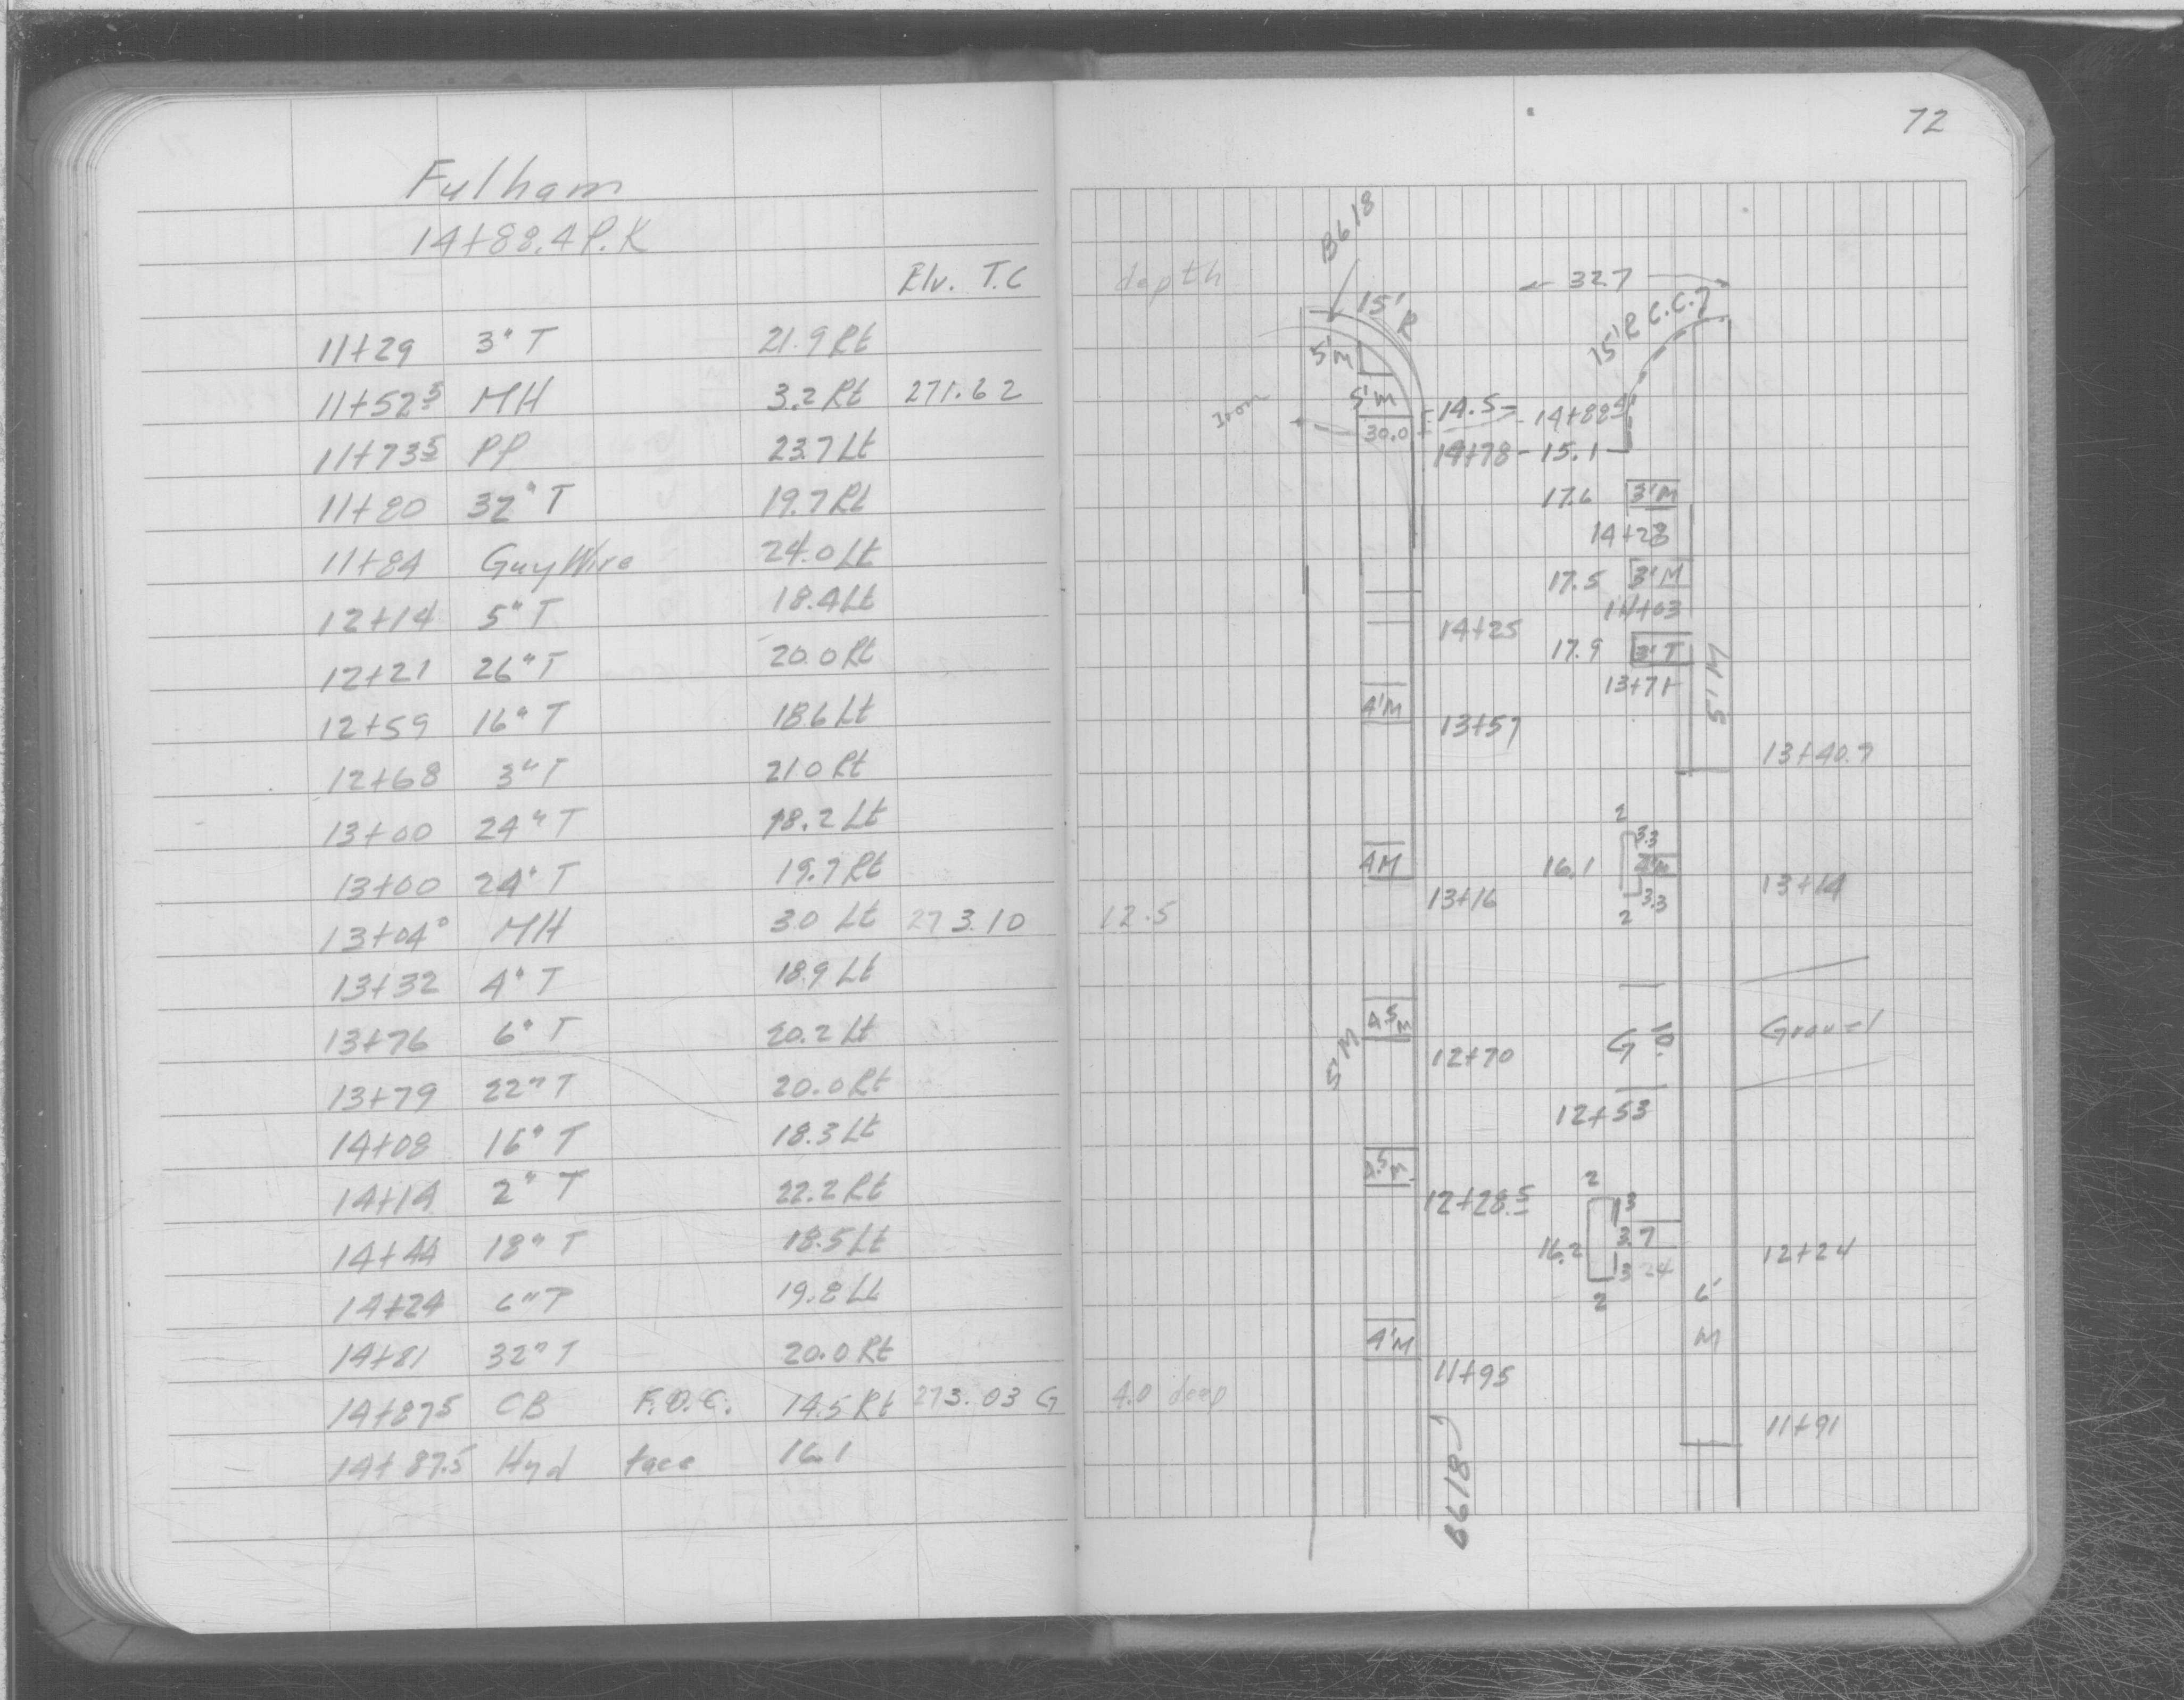 72
Fulham
14+88.4 P.K
Elv. T.C depth
11+29 3" T 21.9 Rt
11+52⁵ MH 3.2 Rt 271.62
11+73⁵ PP 23.7 Lt
11+80 32" T 19.7 Rt
11+84 Guy Wire 24.0 Lt
12+14 5" T 18.4 Lt
12+21 26" T 20.0 Rt
12+59 16" T 18.6 Lt
12+68 3" T 21.0 Rt
13+00 24" T 18.2 Lt
13+00 24" T 19.7 Rt
13+04⁰ MH 3.0 Lt 273.10 12.5
13+32 4" T 18.9 Lt
13+76 6" T 20.2 Lt
13+79 22" T 20.0 Rt
14+08 16" T 18.3 Lt
14+14 2" T 22.2 Rt
14+44 18" T 18.5 Lt
14+24 6" T 19.8 Lt
14+81 32" T 20.0 Rt
14+87⁵ CB F.O.C. 14.5 Rt 273.03 G 4.0 deep
14+87.5 Hyd face 16.1
B618
32.7
15'R
15'R C.C.
5'M
5'M
14.5 14+88⁴
30.0
14+78 15.1
17.6 3'M
14+28
17.5 3'M
14+03
14+25
17.9 3'T
13+71
5'M
4'M
13+57
13+40.7
2
3.3
4M 16.1
13+16 3.3 13+14
2
4.5M
5'M
12+70 G Gravel
12+53
4.5M
2
12+28.5 3
16.2 3.7 12+24
3
2
6'
M
4'M
11+95
11+91
B618